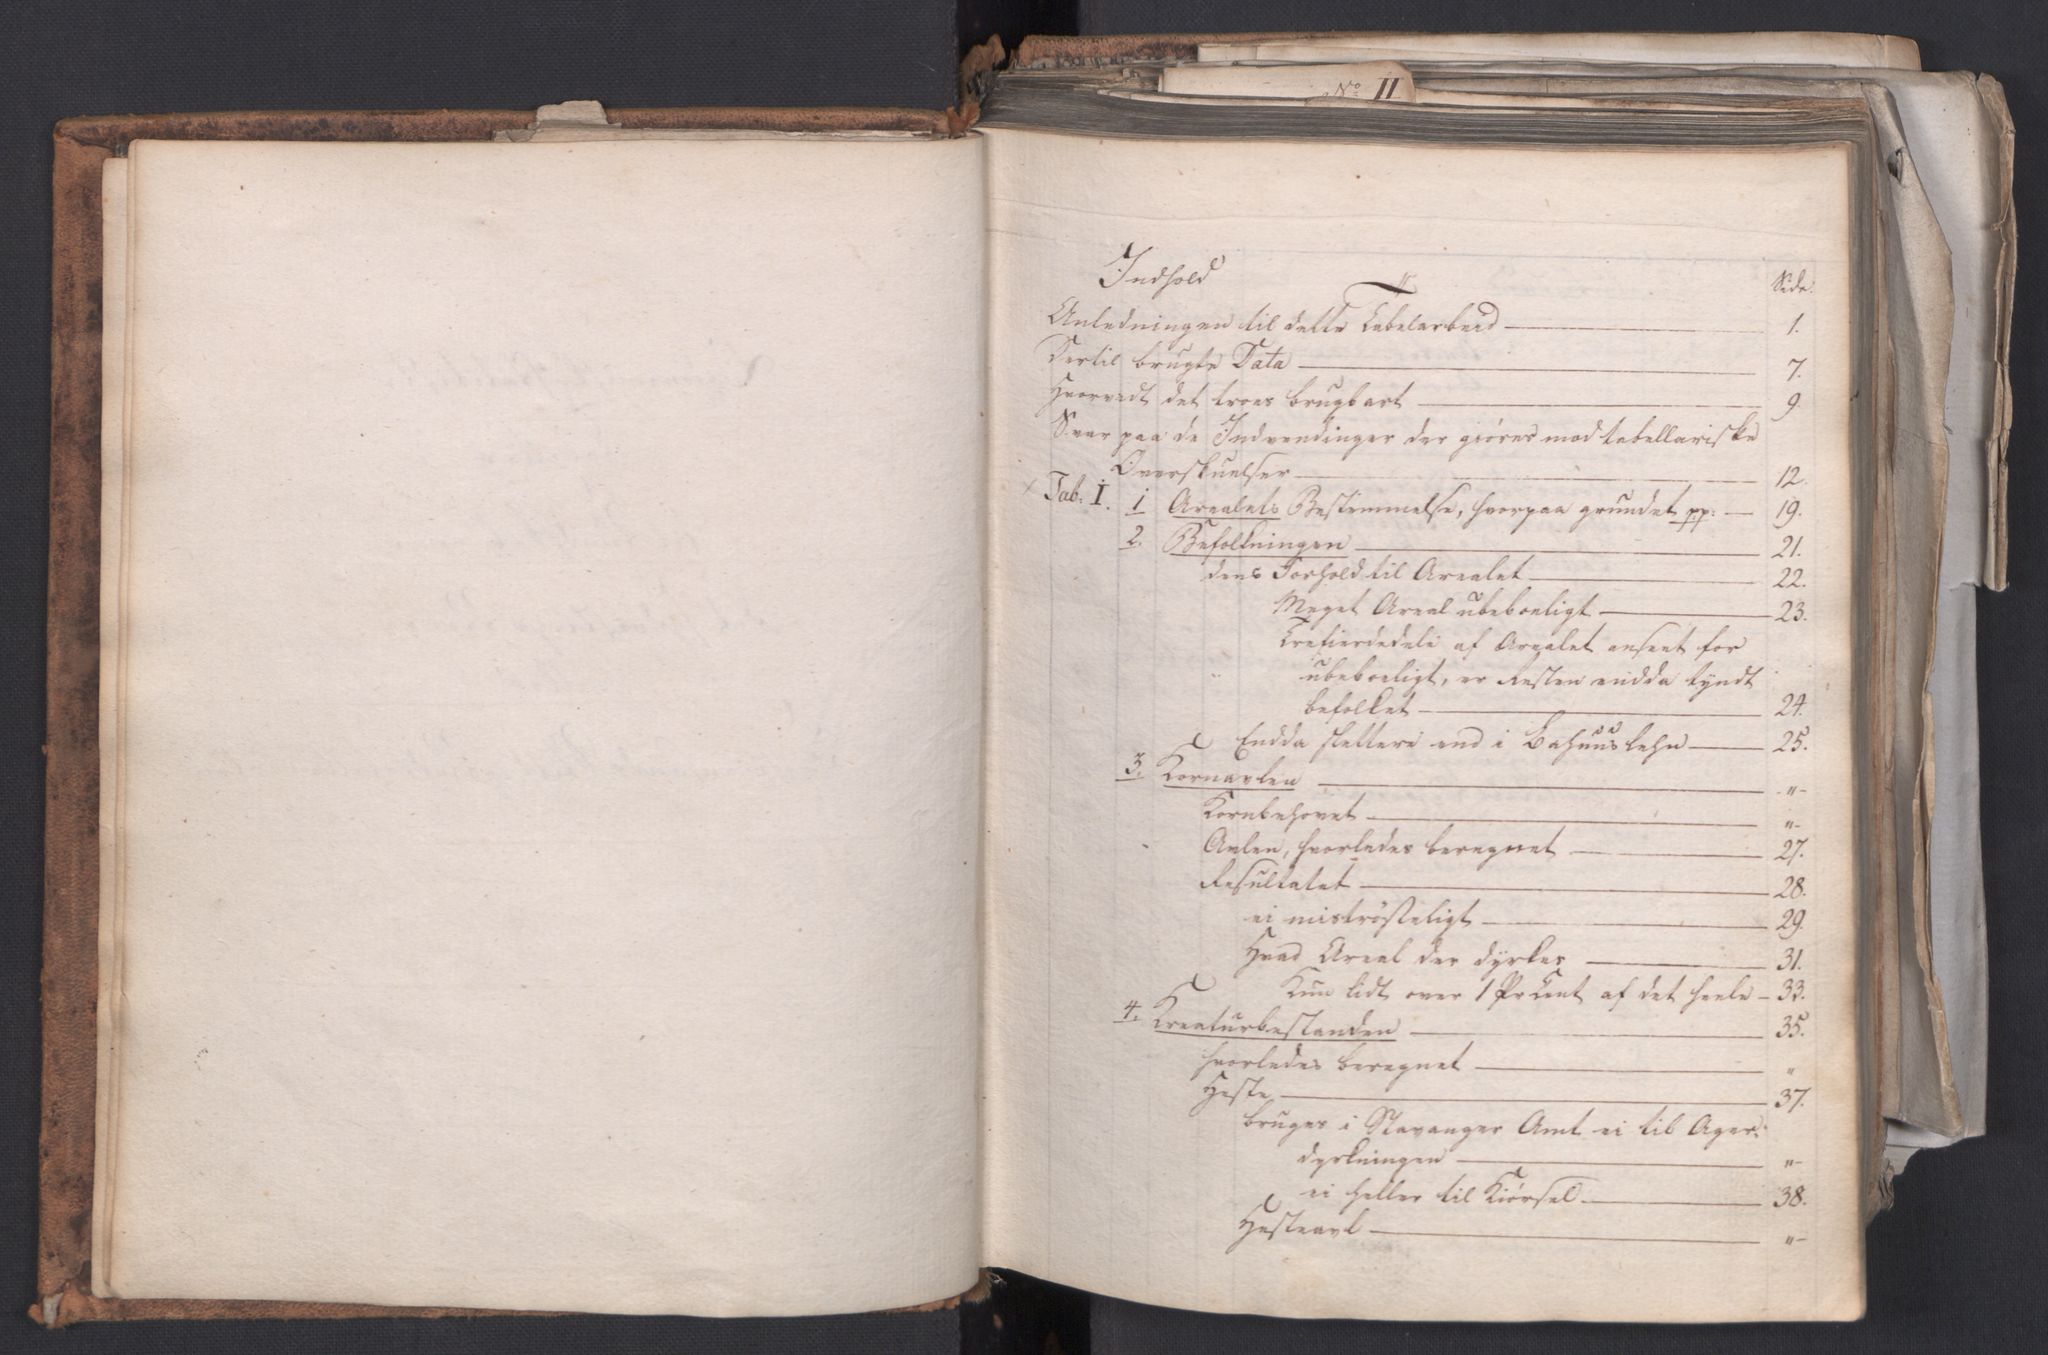 No II
Indhold
Side.
Anledningen til dette Tabelarbeid 1.
Dertil brugte Data 7.
Hvorvidt det troes brugbart 9
Svar paa de Indvendinger der giöres mod tabellariske
Overskuelser 12.
Tab: I. 1 Arealets Bestemmelse, hvorpaa grundet pp: 19.
2. Befolkningen 21.
dens Forhold til Arealet 22.
Meget Areal ubeboeligt 23.
Trefierdedele af Arealet anseet for
ubeboeligt, er Resten endda tyndt
befolket 24.
Endda slettere end i Bahuuslehn 25.
3. Kornavlen "
Kornbehovet "
Avlen, hvorledes beregnet 27.
Resultatet 28.
ei miströsteligt 29.
Hvad Areal der dyrkes 31.
Kun lidt over 1 PrCent af det heele 33.
4. Kreaturbestanden 35.
hvorledes beregnet "
Heste 37.
bruges i Stavanger Amt ei til Ager-
dyrkningen "
ei heller til Kiörsel 38.
Hesteavl "